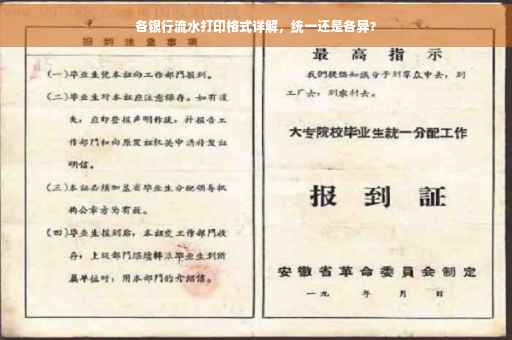 各银行流水打印格式详解，统一还是各异？
报到注意事项
(一)毕业生凭本证向工作部门报到。
(二)毕业生对本证应注意保存。如有遗
失，应即登报声明作废，并报告工
作部门和向原发证机关申请补发证
明信。
(三)本证必须加盖省毕业生分配领导机
构公章方为有效。
(四)毕业生报到后，本证交工作部门收
存；上级部门
毕业生到所
属单位时，用本部门的介绍信。
最高指示
我们提倡知识分子到群众中去，到
工厂去，到农村去。
大专院校毕业生統一分配工作
报到証
安徽省革命委員会制定
一九 年 月 日